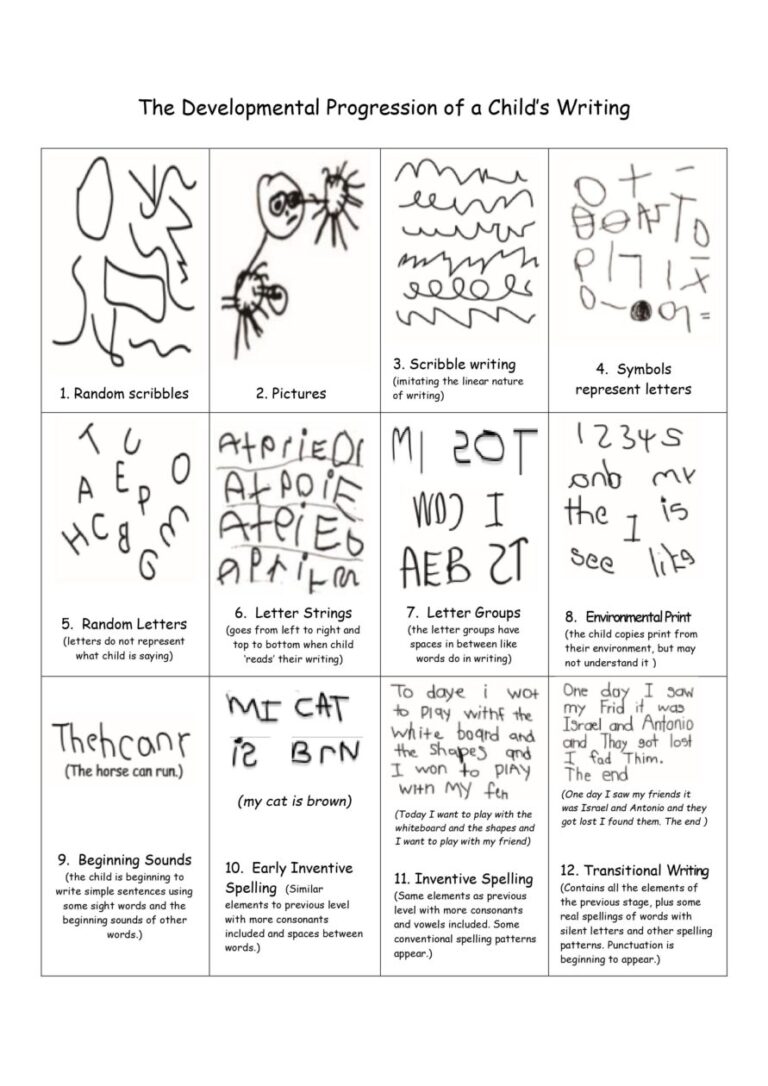 The Developmental Progression of a Child's Writing
1. Random scribbles
2. Pictures
3. Scribble writing
(imitating the linear nature
of writing)
4. Symbols
represent letters
T U
A E P O
H C B G
5. Random Letters
(letters do not represent
what child is saying)
AtprieDl
AtpoiE
AtPiEb
6. Letter Strings
(goes from left to right and
top to bottom when child
'reads' their writing)
MI SOT
I
AEB ST
7. Letter Groups
(the letter groups have
spaces in between like
words do in writing)
1 2 3 4 5
my
the I is
see
8. Environmental Print
(the child copies print from
their environment, but may
not understand it )
Thehcanr
(The horse can run.)
9. Beginning Sounds
(the child is beginning to
write simple sentences using
some sight words and the
beginning sounds of other
words.)
MI CAT
iz BrN
(my cat is brown)
10. Early Inventive
Spelling (Similar
elements to previous level
with more consonants
included and spaces between
words.)
To daye i wot
to Play withf the
white board and
the shapes and
I won to PlAY
with MY feh
(Today I want to play with the
whiteboard and the shapes and
I want to play with my friend)
11. Inventive Spelling
(Same elements as previous
level with more consonants
and vowels included. Some
conventional spelling patterns
appear.)
One day I saw
my Frid it was
Israel and Antonio
and Thay got lost
I fad Thim.
The end
(One day I saw my friends it
was Israel and Antonio and they
got lost I found them. The end )
12. Transitional Writing
(Contains all the elements of
the previous stage, plus some
real spellings of words with
silent letters and other spelling
patterns. Punctuation is
beginning to appear.)